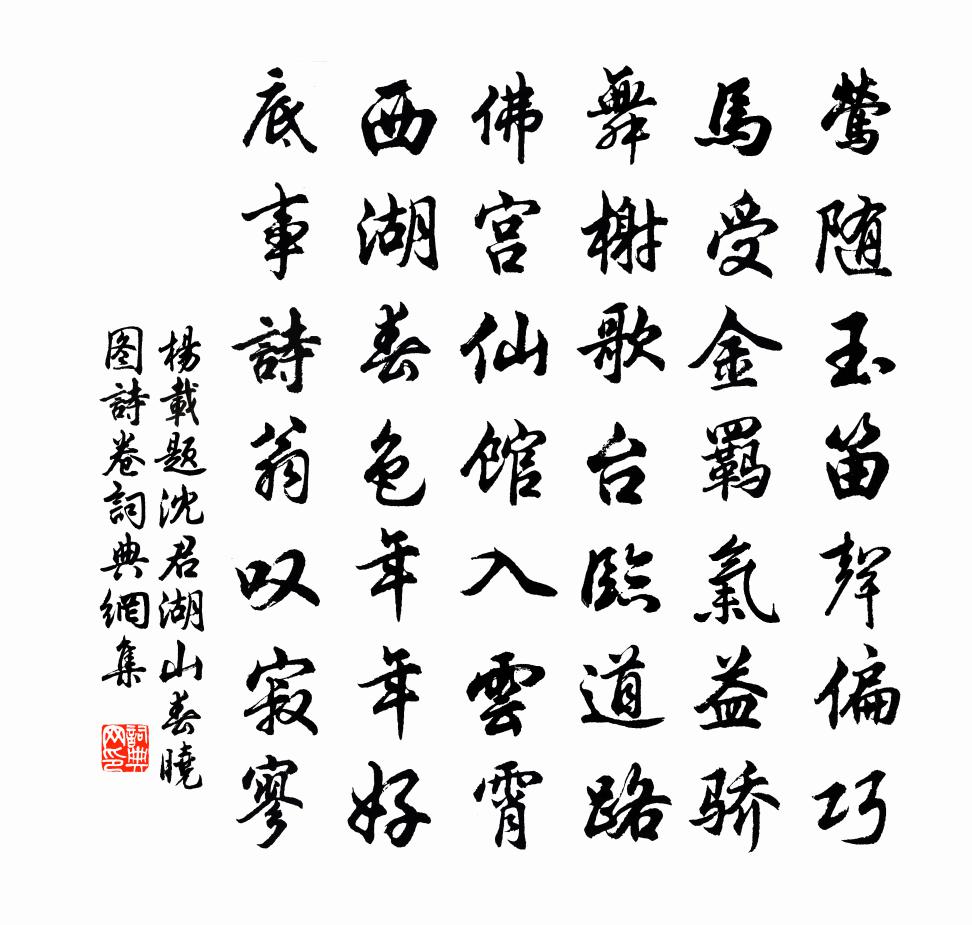 莺随玉笛聲偏巧
馬受金羈氣益骄
舞榭歌台臨道路
佛宫仙馆入雲霄
西湖春色年年好
底事詩翁叹寂寥
楊載题沈君湖山春曉
图詩卷詞典網集
詞典網印